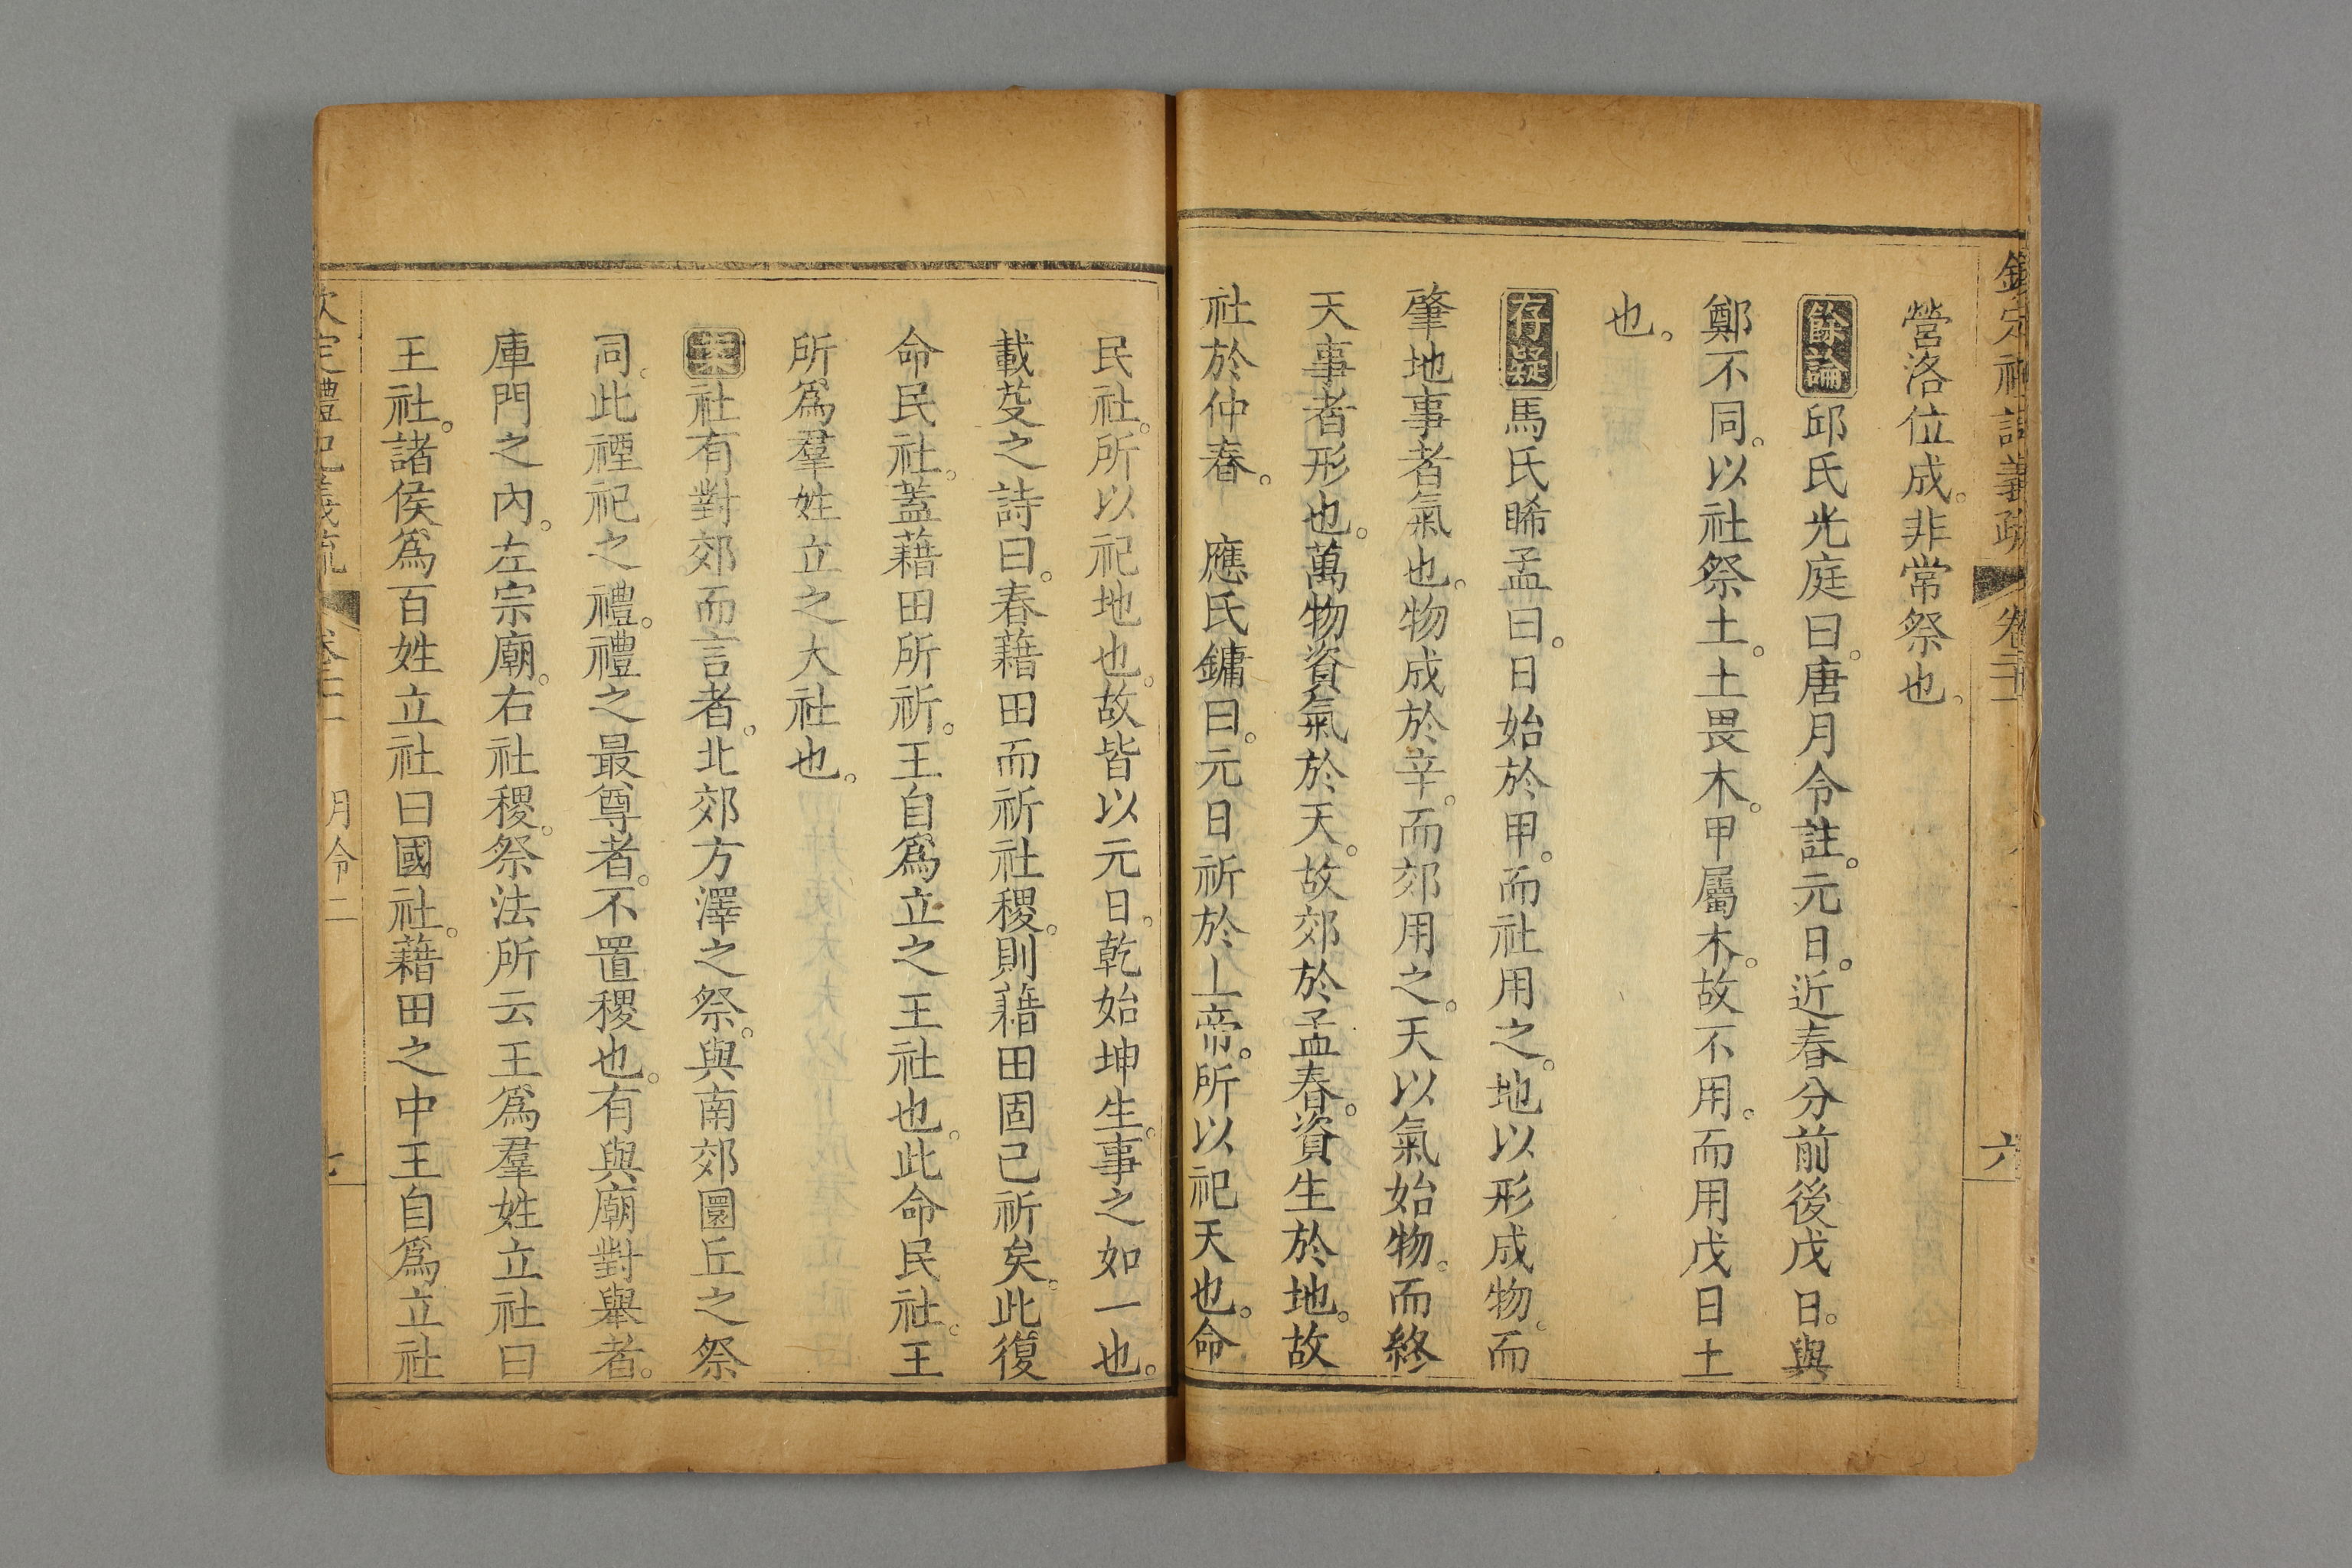 營洛位成。非常祭也。
餘論邱氏光庭曰。唐月令註。元日。近春分前後戊日。與
鄭不同。以社祭土。土畏木。甲屬木。故不用。而用戊日土
也。
存疑馬氏睎孟曰。日始於甲。而社用之。地以形成物。而
肇地事者氣也。物成於辛。而郊用之。天以氣始物。而終
天事者形也。萬物資氣於天。故郊於孟春。資生於地。故
社於仲春。 應氏鏞曰。元日祈於上帝。所以祀天也。命
民社。所以祀地也。故皆以元日。乾始坤生。事之如一也。
載芟之詩曰。春藉田而祈社稷。則藉田固已祈矣。此復
命民社。蓋藉田所祈。王自爲立之王社也。此命民社。王
所爲羣姓立之大社也。
案社有對郊而言者。北郊方澤之祭。與南郊圜丘之祭
同。此禋祀之禮。禮之最尊者。不置稷也。有與廟對舉者。
庫門之內。左宗廟。右社稷。祭法所云王爲羣姓立社曰
王社。諸侯爲百姓立社曰國社。藉田之中王自爲立社
月令二
六
七